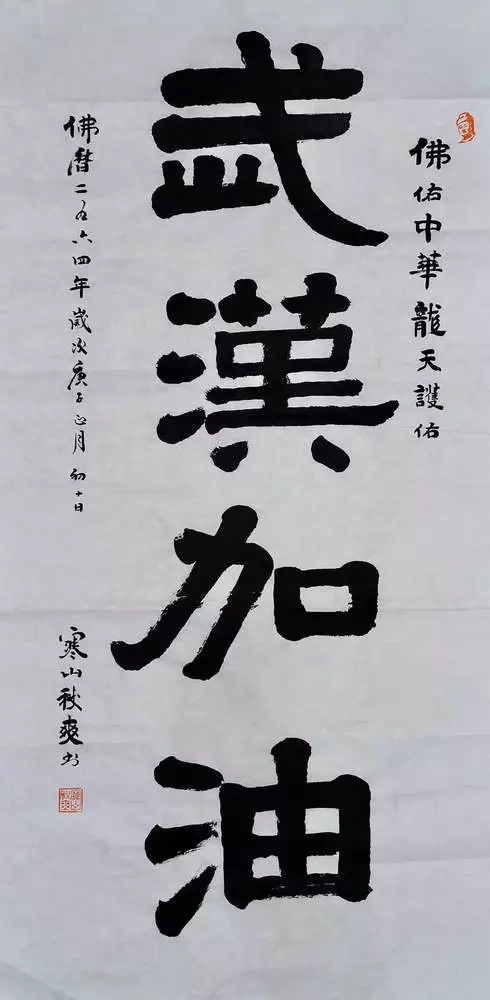 佛佑中華龍天護佑
武漢加油
佛曆二五六四年歲次庚子正月初十日
寒山秋爽书